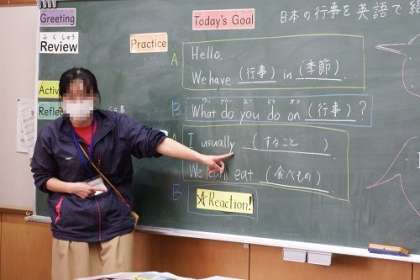 Greeting
ふくしゅう
Review
Today's Goal
日本の行事を英語で
Practice
A
Hello.
We have (行事) in (季節)
B
What do you do on (行事)?
A
I usually (すること)
We eat (食べもの)
B
☆Reaction!
Activ
Refle